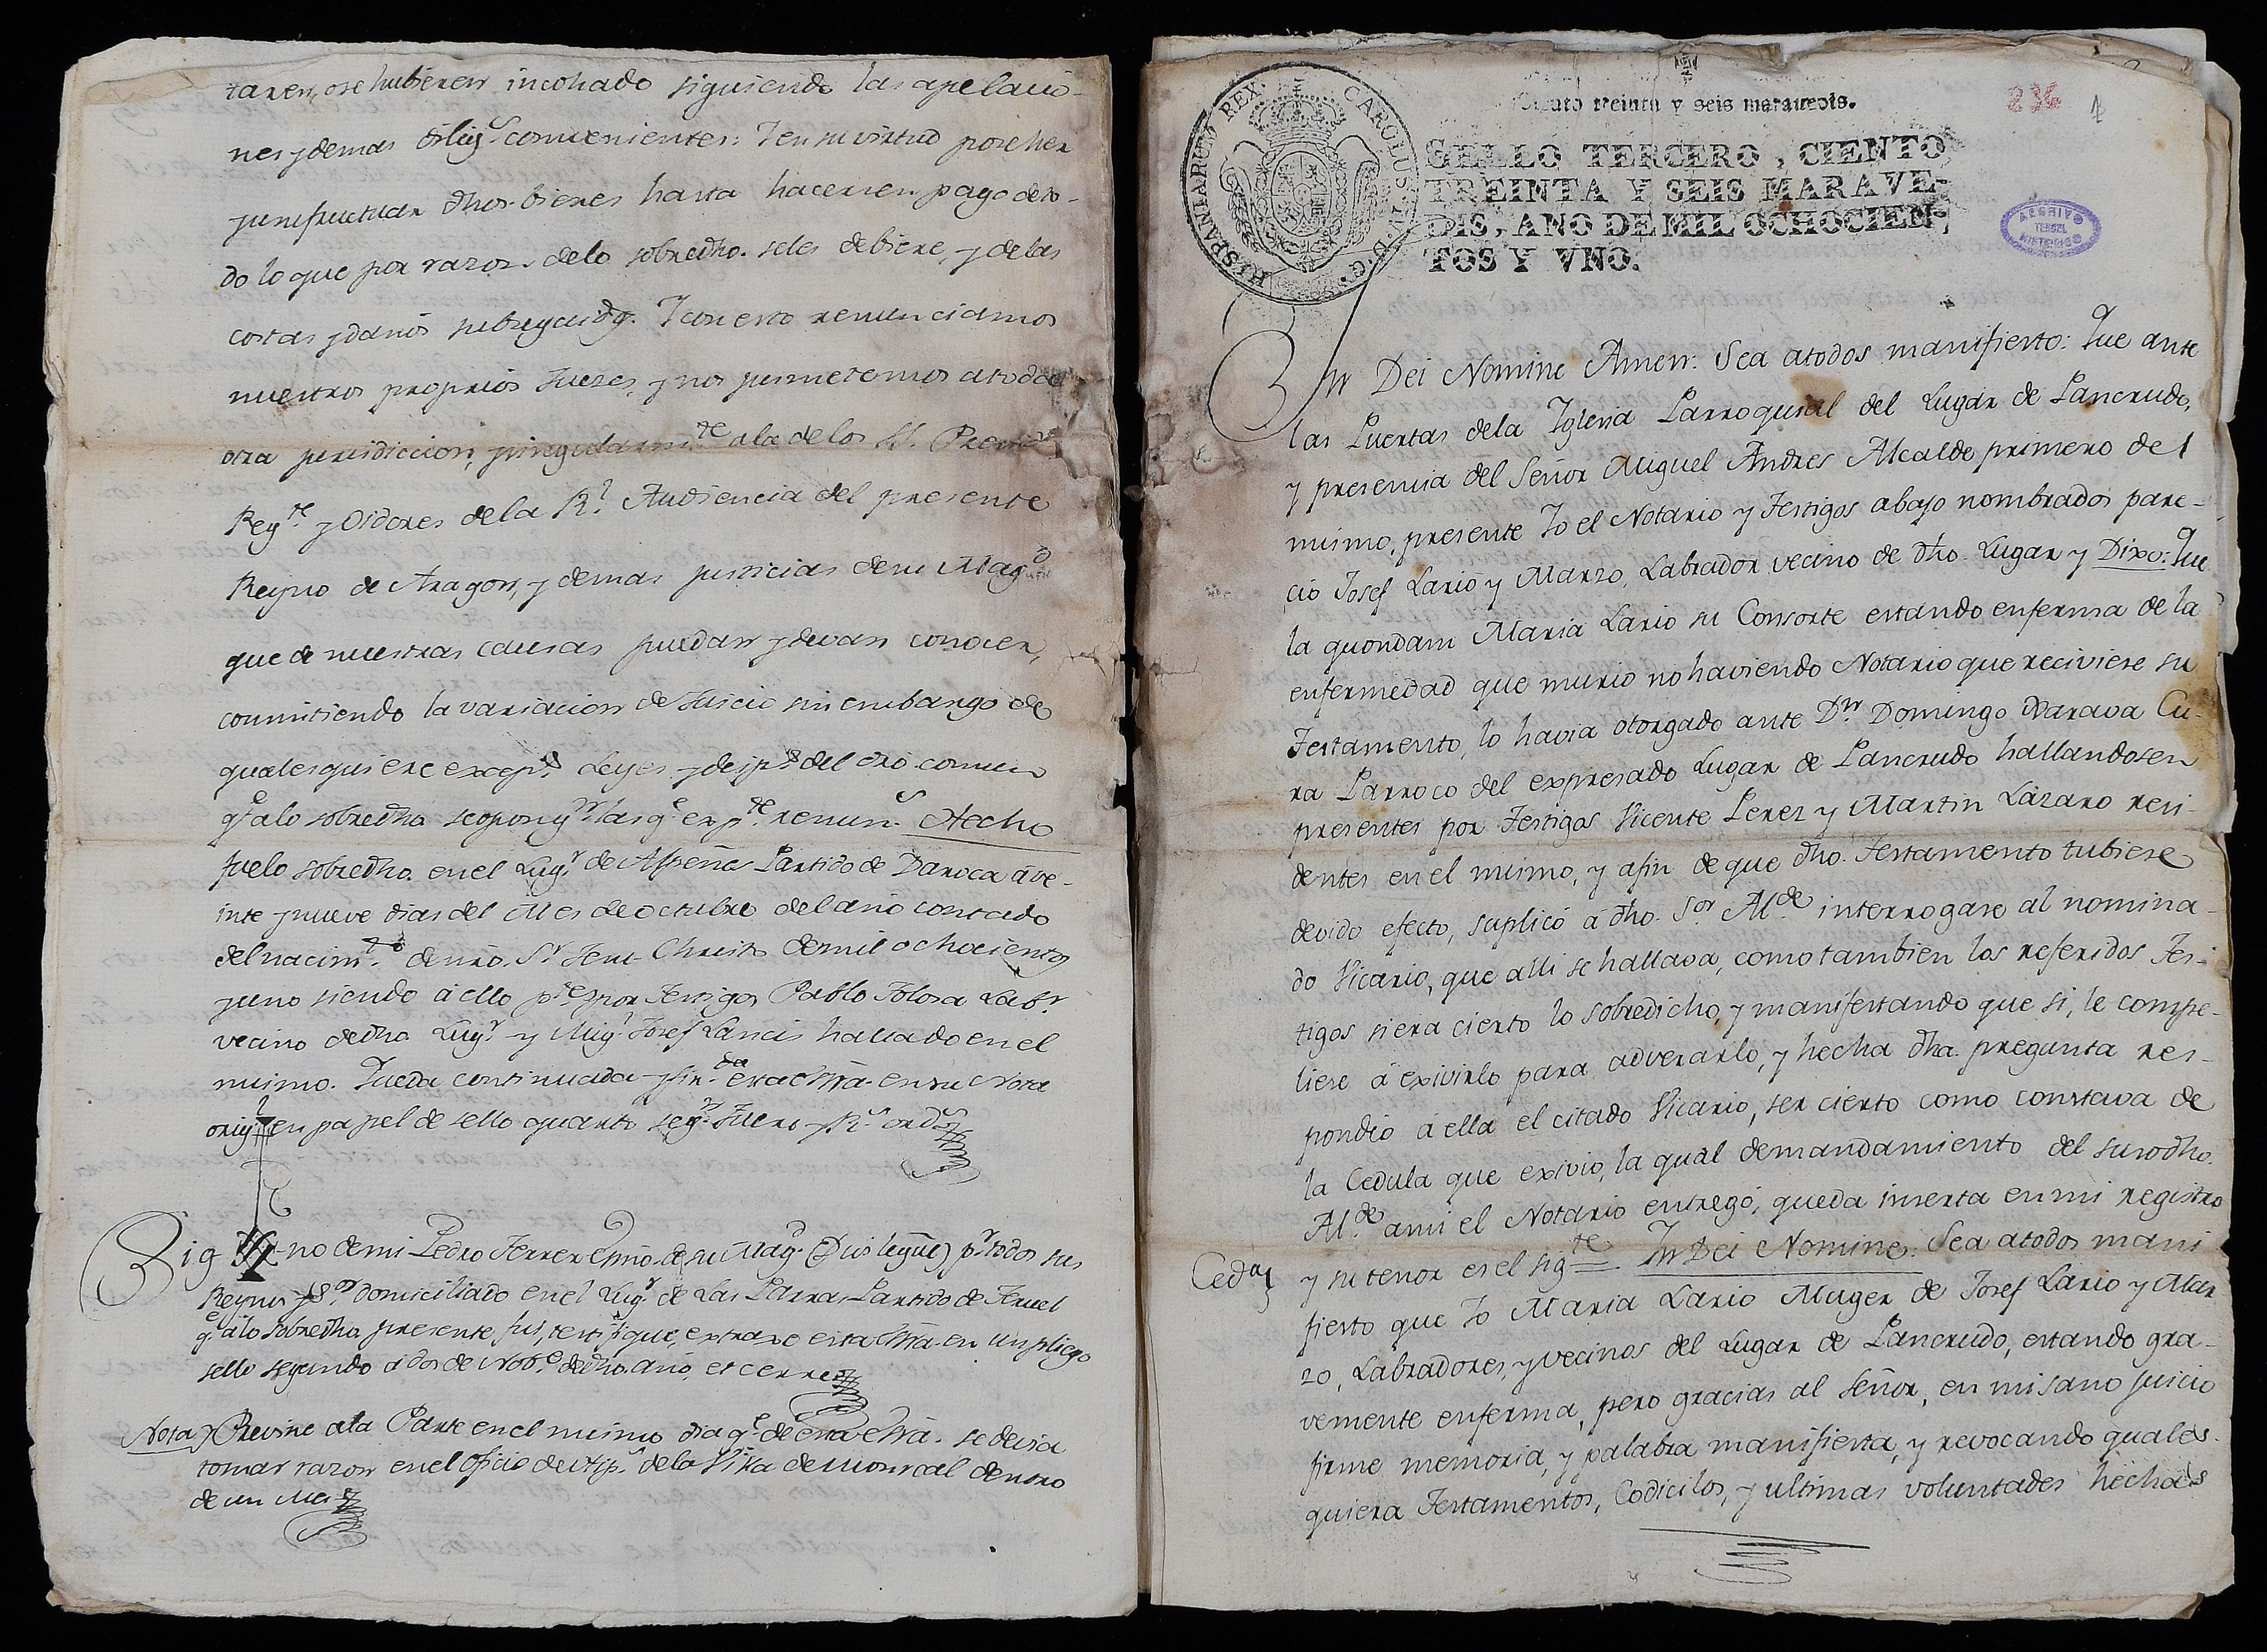 taren, ose hubieren incohado siguiendo las apelacio-
nes y demas dilig.s convenientes: Y en su virtud poseher
y usufructuar dhos. bienes hasta hacersen pago de to-
do lo que por razon delo sobredho. seles debiere, y de las
costas y daños subseguidos. Y con esto renunciamos
nuestros proprios Jueces, y nos sumetemos a toda
otra jurisdiccion, y singularm.te ala de los SS.
Reg.te y Oidores de la R.l Audiencia del presente
Reyno de Aragon, y demas justicias de su Mag.d
que de nuestras causas puedan y devan conocer,
consintiendo la variacion de Juicio sin embargo de
qualesquiere excep.s Leyes y disp.s del dro. comun
q.e alo sobredho se opong.n las q.e exp.te renun.s Hecho
fue lo sobredho. en el Lug.r de Alpeñes Partido de Daroca á ve-
inte y nueve dias del Mes de Octubre del año contado
del nacim.to de nro. S.r Jesu-Christo de mil ochocientos
y uno siendo á ello p.tes por Testigos Pablo Tolosa Lab.r
vecino de dho. Lug.r y Mig.l Josef Lancis hallado en el
mismo. Queda continuada y fir.da esta Essra. en su Nota
orig.l en papel de sello quarto seg.n Fuero y R.s ord.s
Sig no de mi Pedro Ferrer Essno. de su Mag.d (Dios le gūe) p.r todos sus
Reynos y S.os domiciliado en el Lug.r de Las Parras Partido de Teruel
q.e á lo sobredho. presente fui, testifiqué, extraxe esta Essra. en un pliego
sello segundo a dos de Nob.e de dho. año, et cerre
Nota Previne ala Parte en el mismo dia q.e de esta Essra. se devia
tomar razon en el Oficio de Hip.s de la Villa de Monreal dentro
de un Mes
Ciento treinta y seis maravedis.
236
HISPANIARUM REX CAROLUS IV D G
SELLO TERCERO, CIENTO
TREINTA Y SEIS MARAVE-
DIS, AÑO DE MIL OCHOCIEN-
TOS Y VNO.
ARCHIVO
TERUEL
HISTORICO
In Dei Nomine Amen: Sea atodos manifiesto: Que ante
las Puertas dela Iglesia Parroquial del Lugar de Pancrudo,
y presencia del Señor Miguel Andres Alcalde primero del
mismo, presente Yo el Notario y Testigos abajo nombrados pare-
ció Josef Lario y Marzo, Labrador vecino de dho. Lugar y Dixo: Que
la quondam Maria Lario su Consorte estando enferma de la
enfermedad que murio no haviendo Notario que reciviese su
Testamento, lo havia otorgado ante D.n Domingo Narava Cu-
ra Parroco del expresado Lugar de Pancrudo hallandosen
presentes por Testigos Vicente Perez y Martin Lazaro resi-
dentes en el mismo, y afin de que dho. Testamento tubiese
devido efecto, suplicó á dho. S.or Al.de interrogase al nomina-
do Vicario, que alli se hallava, como tambien los referidos Tes-
tigos si era cierto lo sobredicho, y manifestando que si, le compe-
liese á exivirlo para adverarlo, y hecha dha. pregunta res-
pondio a ella el citado Vicario, ser cierto como constava de
la Cedula que exivio, la qual demandamiento del susodho.
Al.de ami el Notario entregó, queda inserta en mi registro
Ced.a y su tenor es el sig.te = In Dei Nomine: Sea atodos mani
fiesto que Yo Maria Lario Muger de Josef Lario y Mar
zo, Labradores, y vecinos del Lugar de Pancrudo, estando gra-
vemente enferma, pero gracias al Señor, en mi sano juicio
firme memoria, y palabra manifiesta, y revocando quales-
quiera Testamentos, Codicilos, y ultimas voluntades hechas